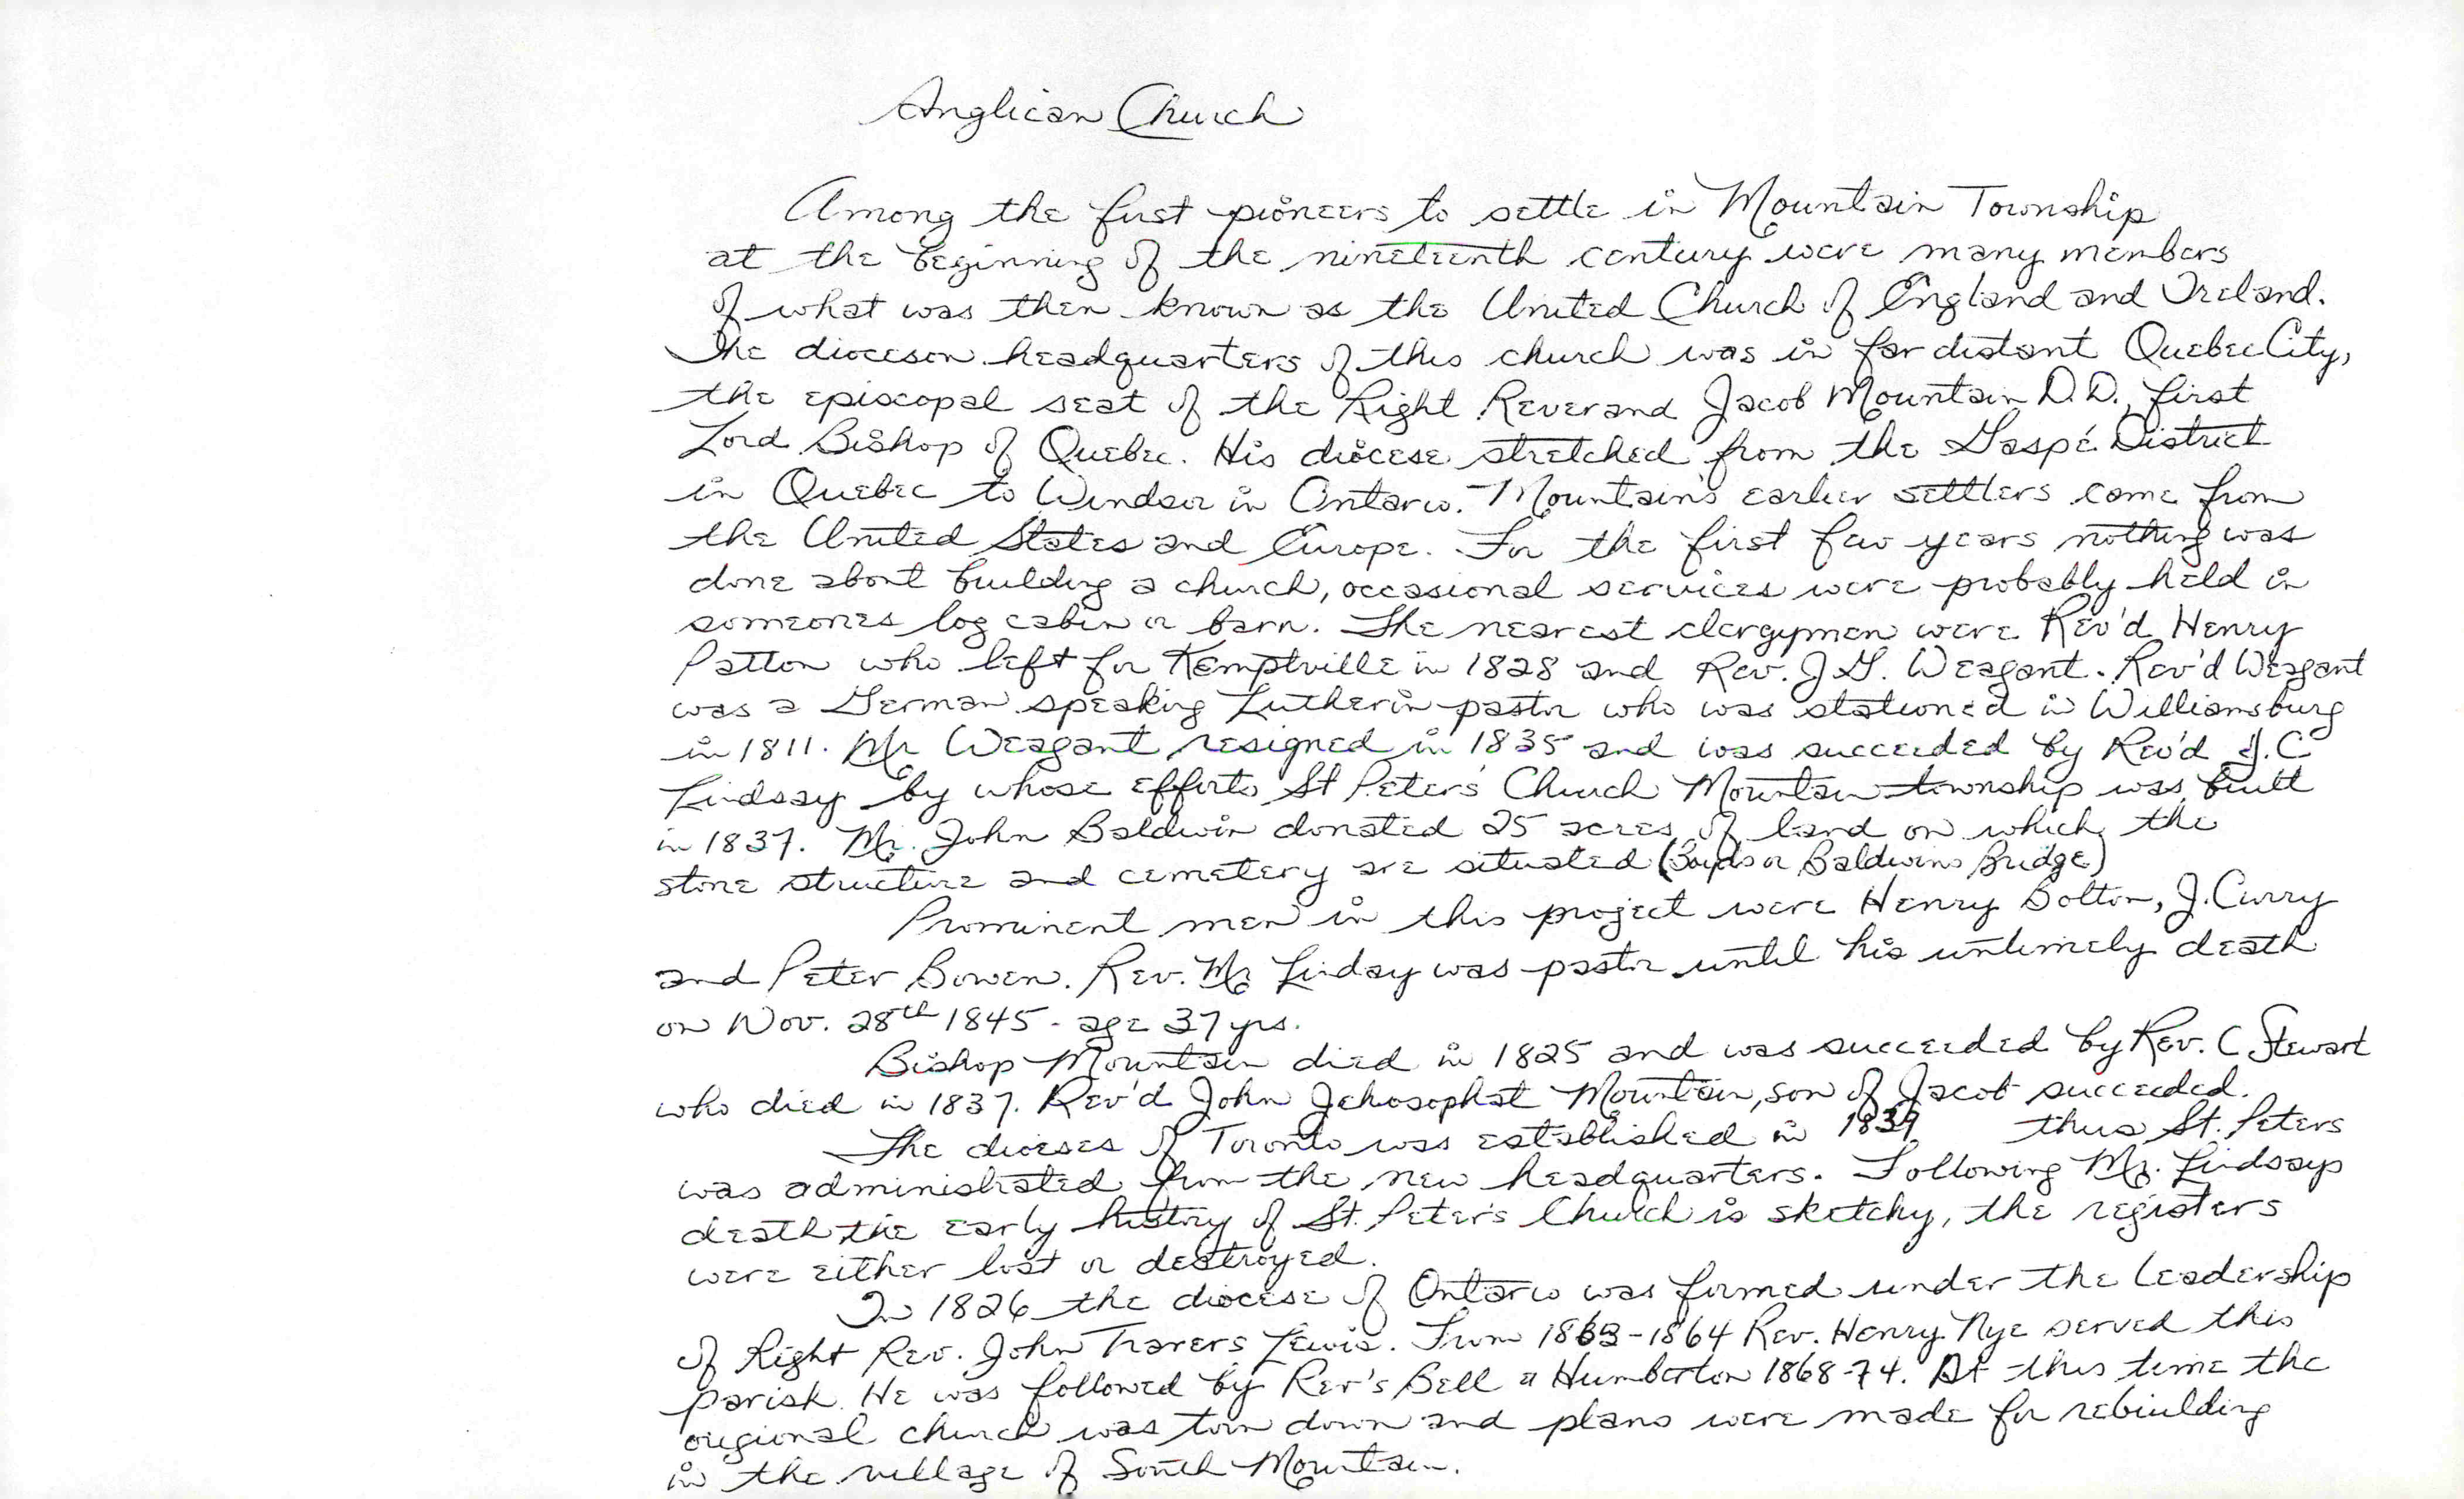 Anglican Church
Among the first pioneers to settle in Mountain Township
at the beginning of the nineteenth century were many members
of what was then known as the United Church of England and Ireland.
The diocesen headquarters of this church was in far distant Quebec City,
the episcopal seat of the Right Reverand Jacob Mountain D.D., first
Lord Bishop of Quebec. His diocese stretched from the Gaspé District
in Quebec to Windsor in Ontario. Mountain's earlier settlers came from
the United States and Europe. For the first few years nothing was
done about building a church, occasional services were probably held in
someones log cabin or barn. The nearest clergymen were Rev'd Henry
Patton who left for Kemptville in 1828 and Rev. J.G. Weagant. Rev'd Weagant
was a German speaking Lutherin pastor who was stationed in Williamsburg
in 1811. Mr Weagant resigned in 1835 and was succeeded by Rev'd J.C
Lindsay by whose efforts St Peter's Church Mountain township was built
in 1837. Mr. John Baldwin donated 25 acres of land on which the
stone structure and cemetery are situated (Boyds or Baldwins Bridge)
Prominent men in this project were Henry Bolton, J. Curry
and Peter Bowen. Rev. Mr Lindsay was pastor until his untimely death
on Nov. 28th 1845 - age 37 yrs.
Bishop Mountain died in 1825 and was succeeded by Rev. C Stewart
who died in 1837. Rev'd John Jehosophat Mountain, son of Jacob succeeded.
The dioeses of Toronto was established in 1839 thus St. Peters
was administrated from the new headquarters. Following Mr. Lindsays
death, the early history of St. Peter's Church is sketchy, the registers
were either lost or destroyed.
In 1826 the diocese of Ontario was formed under the leadership
of Right Rev. John Travers Lewis. From 1863-1864 Rev. Henry Nye served this
parish. He was followed by Rev's Bell & Humberton 1868-74. At this time the
origional church was torn down and plans were made for rebuilding
in the village of South Mountain.